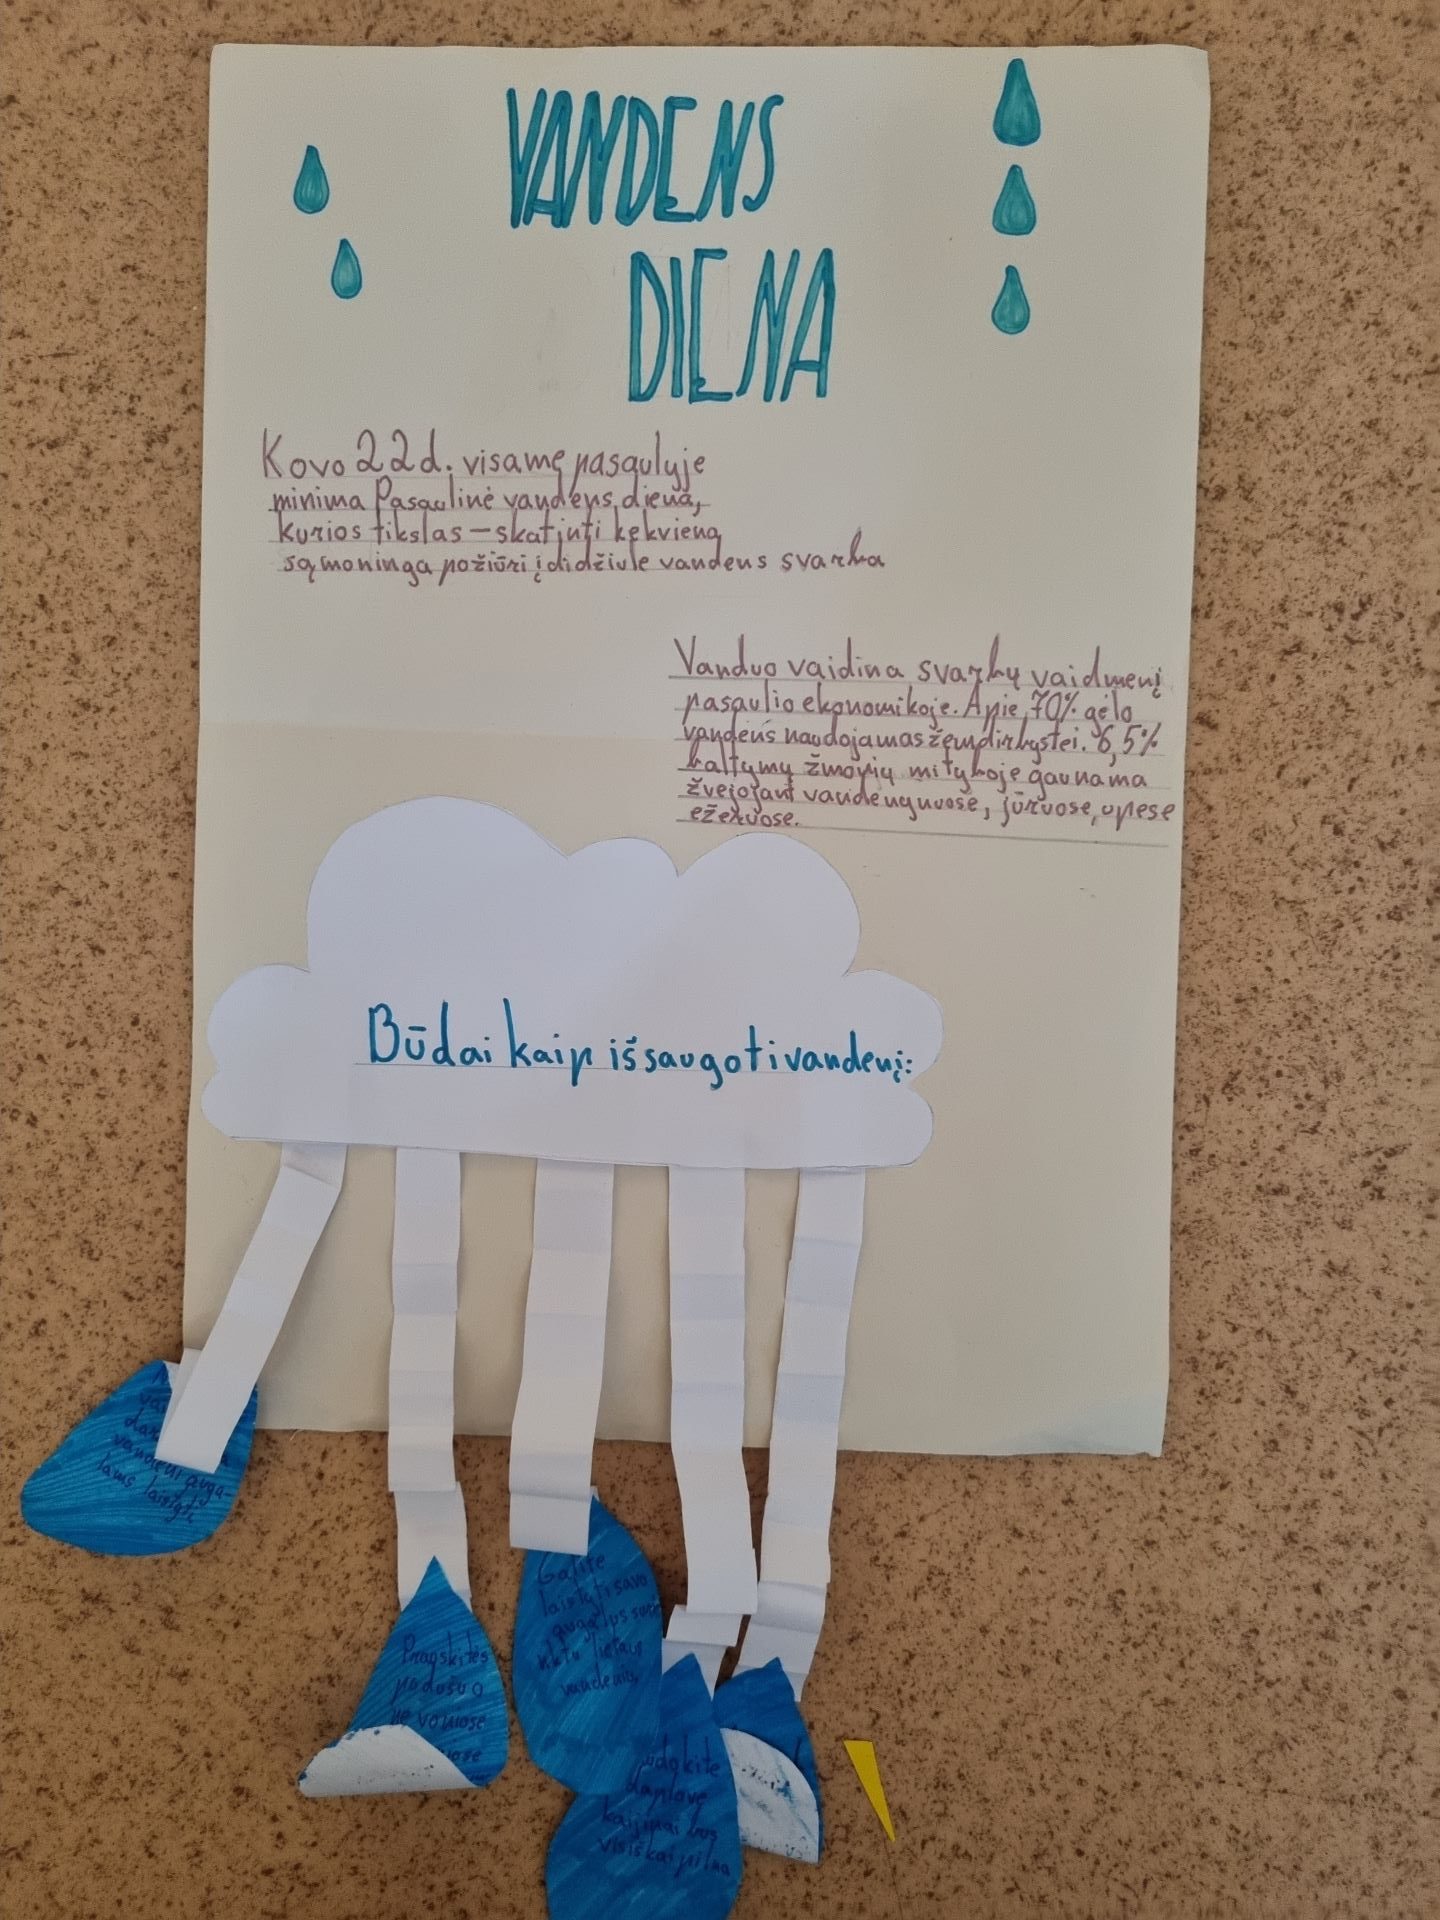 VANDENS
DIENA
Kovo 22d. visamę pasaulyje
minima Pasaulinė vandens diena,
kurios tikslas – skatinti kękvieną
sąmoninga požiūrį į didžiule vandens svarba
Vanduo vaidina svarbų vaidmenį
pasaulio ekonomikoje. Apie 70% gėlo
vandens naudojamas žemdirbystei. 6,5%
baltymų žmonių mityboje gaunama
žvejojant vandenynuose, jūruose, upese
ežeruose.
Būdai kaip išsaugoti vandenį:
vandenį auga-
lams laistyti,
Galite
laistyti savo
augalus
lietaus
vandeniu.
Prauskitės
po dušuo
ne voniose
daplovę
kai jinai bus
visiškai pilna